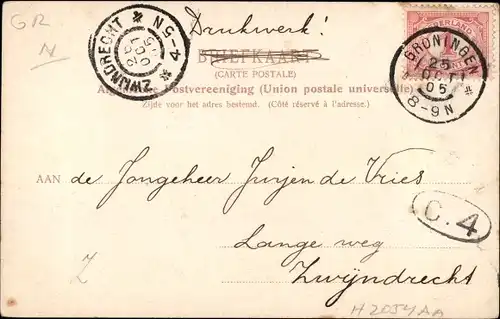 GR
N
ZWIJNDRECHT
4-5N
Drukwerk!
BRIEFKAART
(CARTE POSTALE)
Algemeene Postvereeniging (Union postale universelle)
Zijde voor het adres bestemd. (Côté réservé à l'adresse.)
NEDERLAND
GRONINGEN
25
OCT
05
8-9N
AAN de Jongeheer Jurjen de Vries
C.4
Lange weg
Z
Zwijndrecht
H2054AA